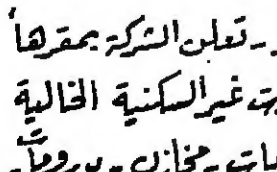 تعلن الشركة بمقرها
غير السكنية الخالية
مخازن - بدرومات